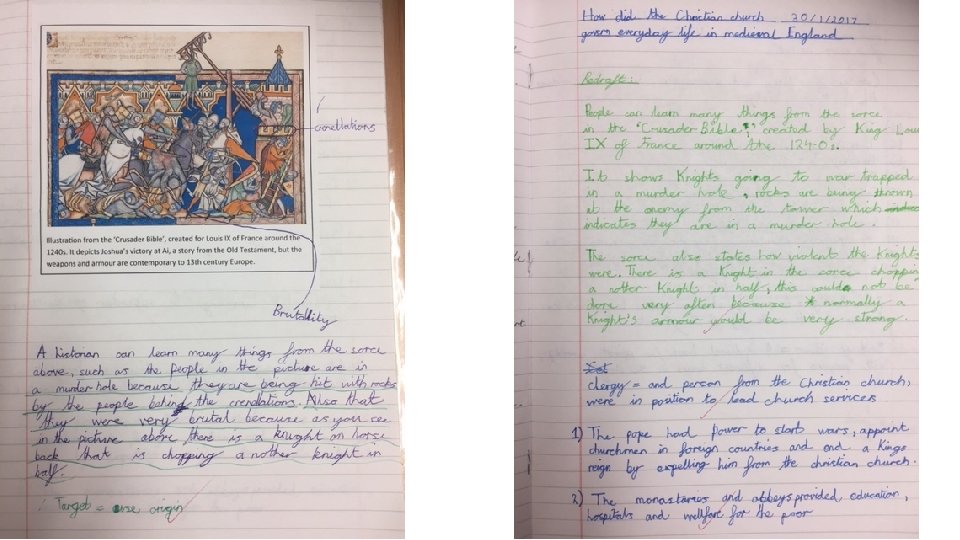 crenellations
Illustration from the 'Crusader Bible', created for Louis IX of France around the
1240s. It depicts Joshua's victory at Ai, a story from the Old Testament, but the
weapons and armour are contemporary to 13th century Europe.
Brutallity
A historian can learn many things from the sorce
above, such as the people in the picture are in
a murder hole because they are being hit with rocks
by the people behind the crenelations. Also that
they were very brutal because as you see
in the picture above there is a knight on horse
back that is chopping another knight in
half.
Target = use origin
How did the Christian church 20/1/2017
govern everyday life in medieval England
Redraft:
People can learn many things from the sorce
in the "Crusader Bible" created by King Lou
IX of France around the 1240s.
It shows Knights going to war trapped
in a murder hole, rocks are being thrown
at the enemy from the tower which
indicates they are in a murder hole.
The sorce also states how violent the Knights
were. There is a Knight in the sorce choppin
a nother Knight in half, this would not be
done very often because normally a
Knight's armour would be very strong.
clergy = and person from the Christian church,
were in position to lead church services
1) The pope had power to start wars, appoint
churchmen in foreign countries and end a Kings
reign by expelling him from the christian church.
2) The monastaries and abbeys provided, education,
hospitals and wellfare for the poor